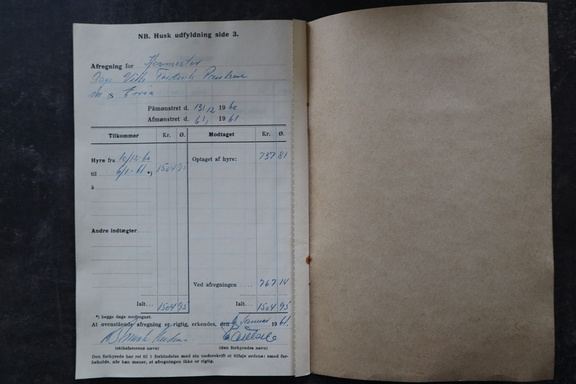 NB. Husk udfyldning side 3.
Afregning for
m s
Paamønstret d. 13/12 1960
Afmønstret d. 6/1 1961
Tilkommer Kr. Ø. Modtaget Kr. Ø.
Hyre fra 13/12-60 Optaget af hyre: 737 81
til 6/1-61 *) 1504 95
à
Andre indtægter
Ved afregningen 767 14
Ialt... 1504 95 Ialt... 1504 95
*) begge dage medregnet.
At ovenstående afregning er rigtig, erkendes, den 6 Januar 1961.
(skibsførerens navn) (den forhyredes navn)
Den forhyrede har ret til i forbindelse med sin underskrift at tilføje ordene: med forbeholde, når han mener, at afregningen ikke er rigtig.